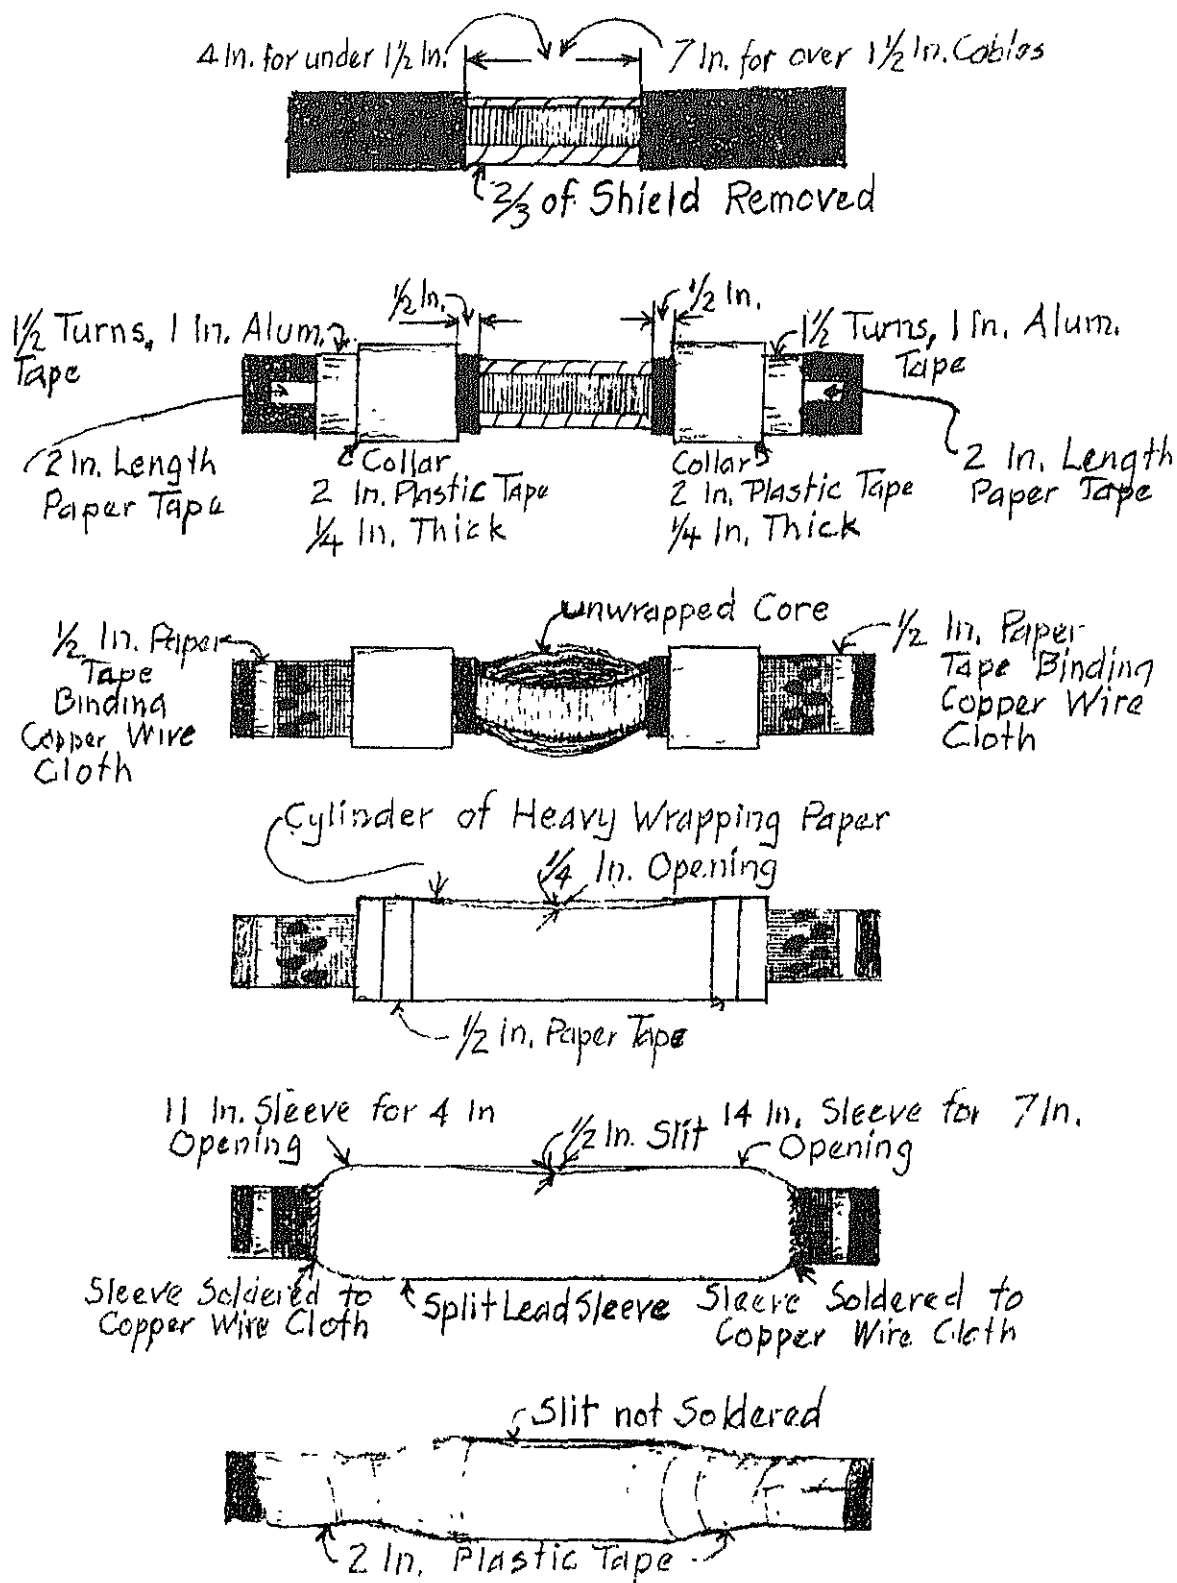 4 In. for under 1½ In.
7 In. for over 1½ In. Cables
⅔ of Shield Removed
½ In.
½ In.
1½ Turns, 1 In. Alum.
Tape
1½ Turns, 1 In. Alum.
Tape
2 In. Length
Paper Tape
Collar
2 In. Plastic Tape
¼ In. Thick
Collar
2 In. Plastic Tape
¼ In. Thick
2 In. Length
Paper Tape
unwrapped Core
½ In. Paper
Tape
Binding
Copper Wire
Cloth
½ In. Paper
Tape Binding
Copper Wire
Cloth
Cylinder of Heavy Wrapping Paper
¼ In. Opening
½ in. Paper Tape
11 In. Sleeve for 4 In
Opening
½ In. Slit
14 In. Sleeve for 7 In.
Opening
Sleeve Soldered to
Copper Wire Cloth
Split Lead Sleeve
Sleeve Soldered to
Copper Wire Cloth
Slit not Soldered
2 In. Plastic Tape